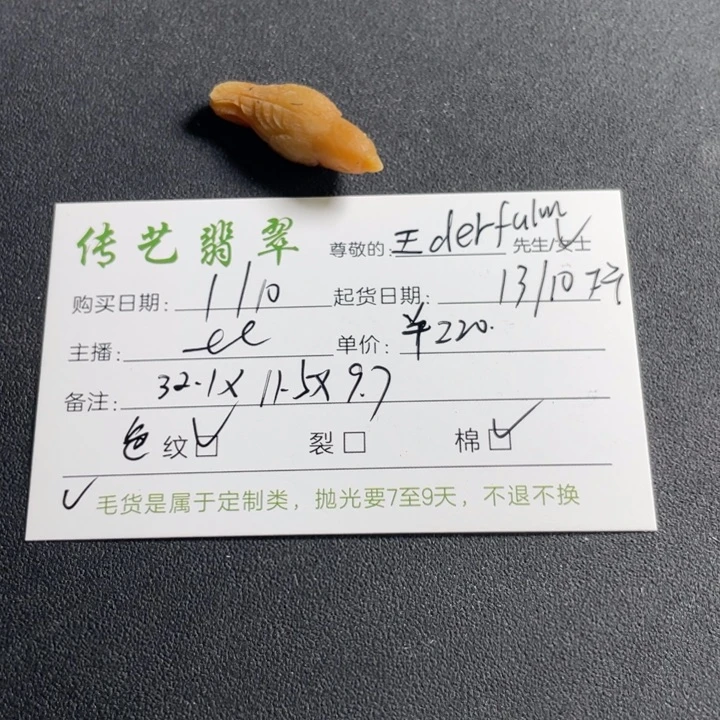 传艺翡翠
尊敬的: 王derfulm 先生/女士
购买日期: 1/10 起货日期: 13/10
主播: ee 单价: ¥220.
备注: 32.1X 11.5X 9.7
色 纹 裂 棉
毛货是属于定制类，抛光要7至9天，不退不换